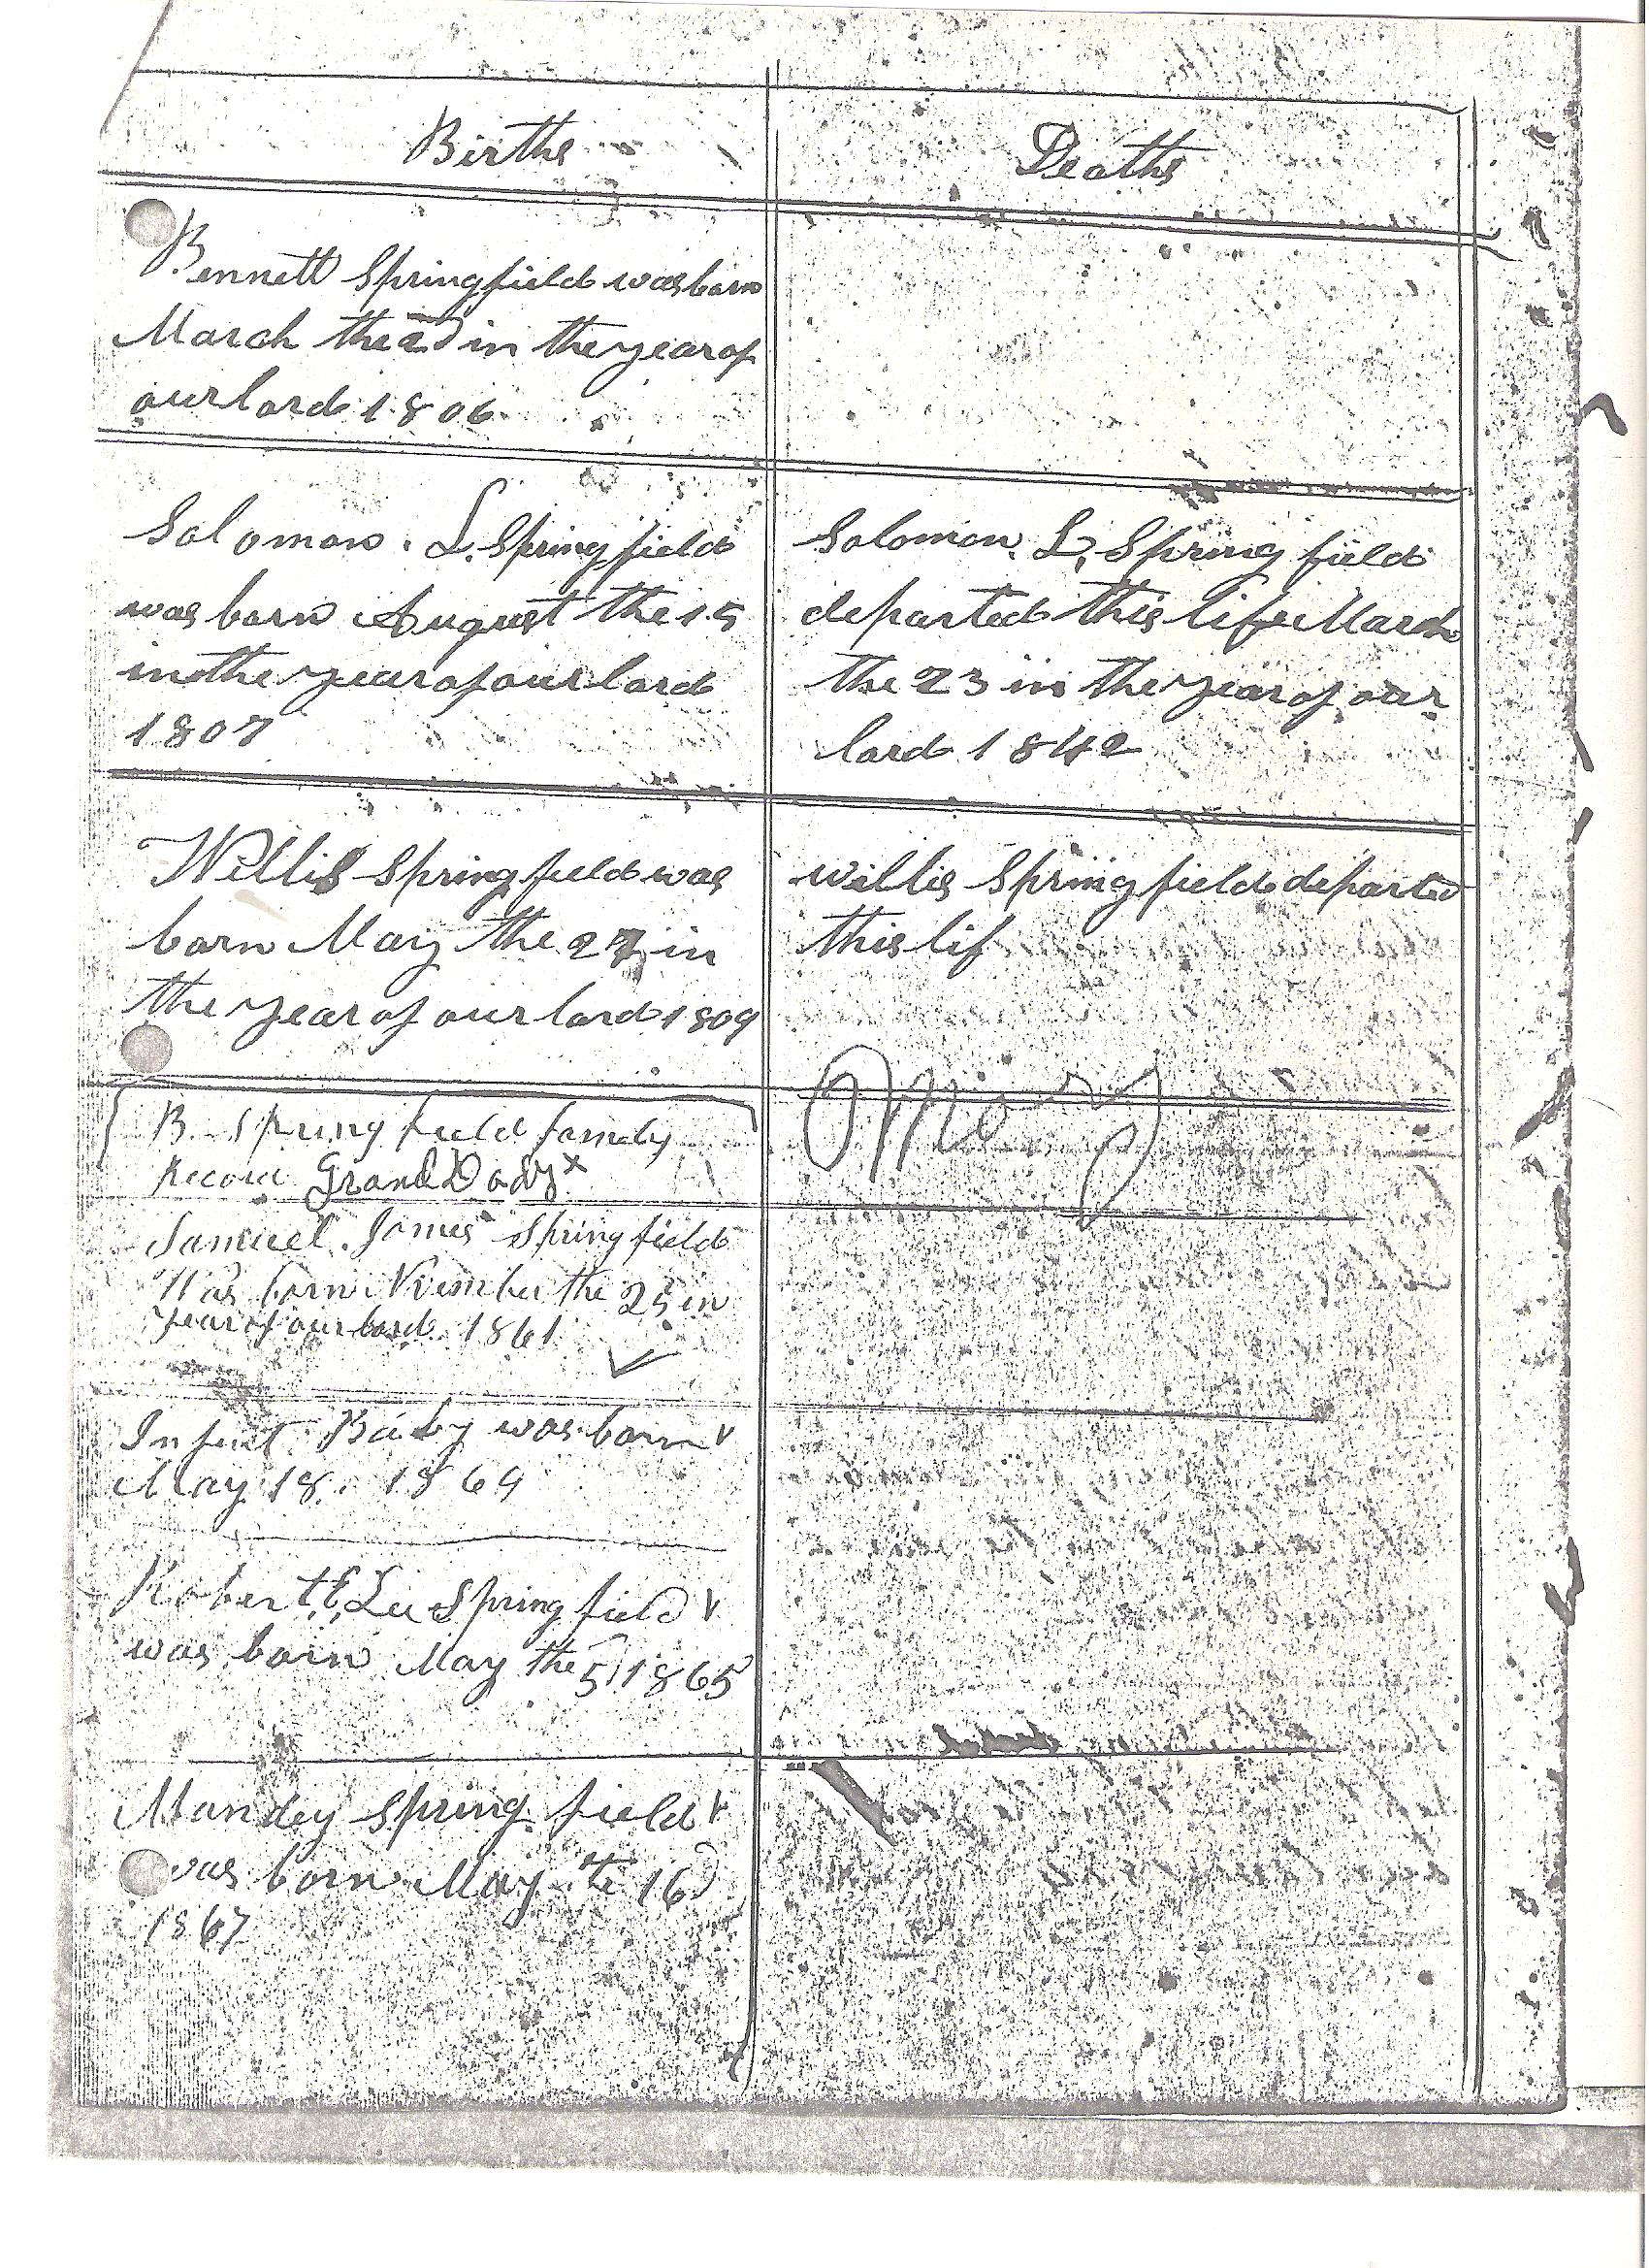 Births
Deaths
Bennett Springfield was born
March the 2d in the year of
our lord 1806
Solomon. L. Springfield
was born August the 15
in the year of our lord
1807
Solomon. L, Springfield
departed this life March
the 23 in the year of our
lord 1842
Willis Springfield was
born May the 27 in
the year of our lord 1809
willis Springfield departed
this lif
B. Springfield family
Record Grand Dady x
Samuel. James Springfield
Was born November the 25 in
year of our lord 1861
Infant Baby was born
May 18. 1864
Robert E, Lee Springfield
was born May the 5, 1865
Mandy Springfield
was born May te 16
1867